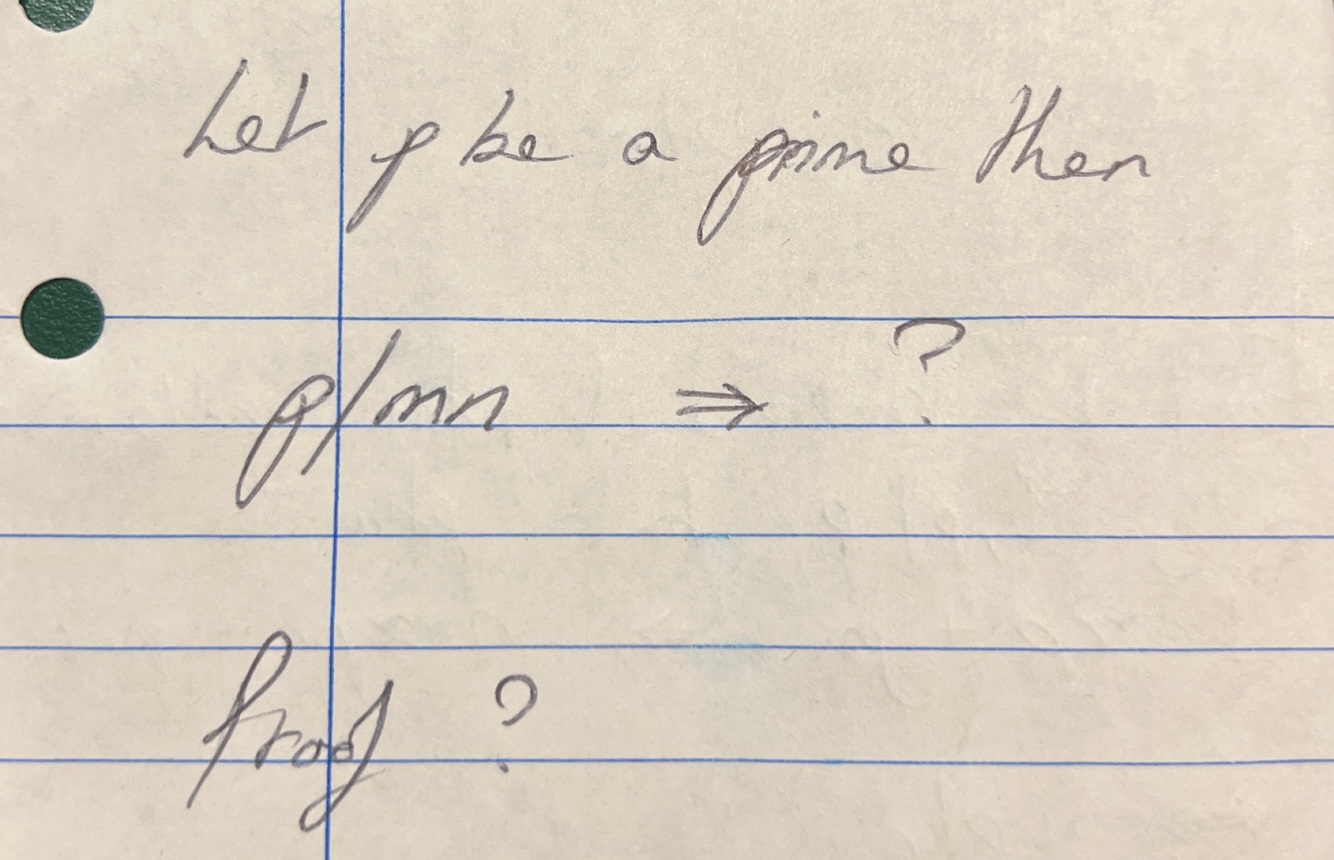 Let p be a prime then
p/mn ⇒ ?
Proof ?